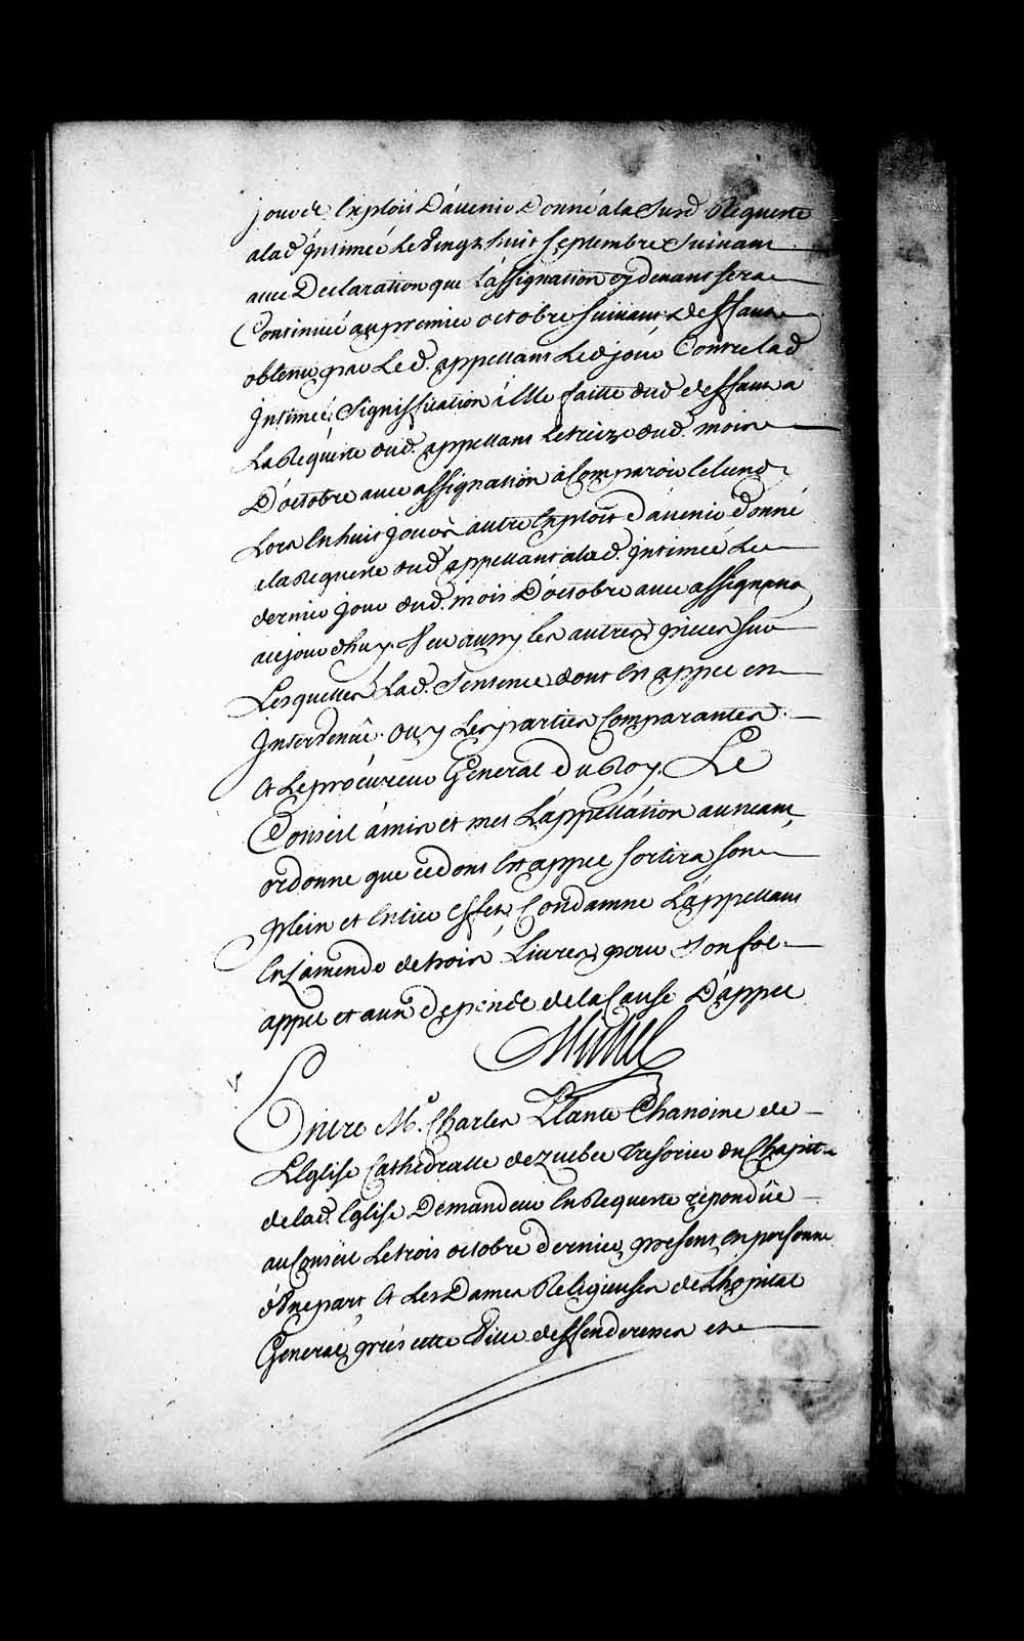 jour de Exploit D'avenir Donné a la Susd Requeste
a lad Intimée Le Vingt huit Septembre Suivant
avec Declaration que L'assignation cy devant sera
Continuée au premier octobre Suivant deffaut
obtenu par Led. appellant Led jour Contre lad
Intimée, Signiffication à Elle faitte dud deffaut a
La Requeste dud. appellant Le treize dud. mois
D'octobre avec assignation à Comparoir le lundy
Lors En huit jours autre Exploit d'avenir donné
a la Requeste dud appellant a lad. Intimée Le
dernier Jour dud. mois D'octobre avec assignaon
au jourdhuy. Veu aussy les autres pieces sur
Lesquelles Lad. Sentence dont Est appel en
Intervenüe. Ouy Les parties Comparantes.
Et Le procureur General du Roy. Le
Conseil à mis et met L'appellation au neant,
ordonne que ce dont Est appel sortira son
plein et Entier Effet, Condamne L'appellant
En L'amende de trois Livres pour son fol
appel et aux depends de la Cause D'appel
Michel
Entre Mr. Charles Plante Chanoine de
L'Eglise Cathedralle de Quebec Tresorier du Chapitre
de lad. Eglise Demandeur En Requeste repondüe
au Conseil Le trois octobre dernier, present en personne
d'Une part, Et Les Dames Religieuses de L'hopital
General, prés cette Ville deffenderesses et